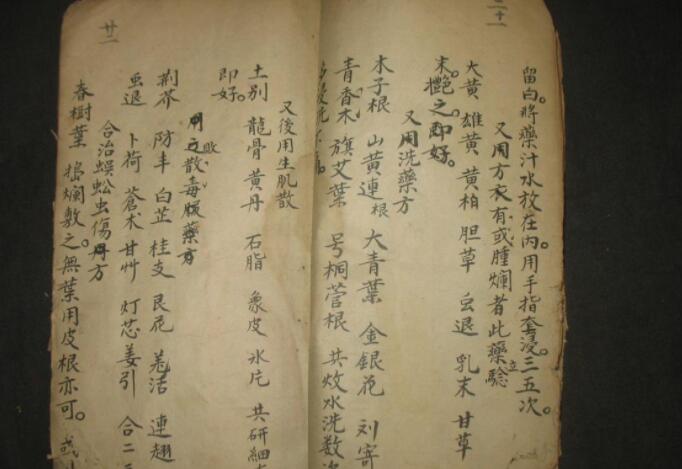 二十一
留白。將藥汁水放在內。用手指套浸。三五次。
又用方衣有或腫爛者此藥立驗
大黃 雄黃 黃柏 胆草 虫退 乳末 甘草
末。艷之。即好。
又用洗藥方
木子根 山黃連根 大青葉 金銀花 刘寄
青香木 旗艾葉 号桐菅根 共炆水洗数
廿二
又後用生肌散
土別 龍骨 黃丹 石脂 象皮 水片 共研細
即好。
用之敗散毒服藥方
荊芥 防丰 白芷 桂支 艮花 羌活 連翹
虫退 卜荷 蒼术 甘艸 灯芯姜引 合二
合治蜈蚣虫傷丹方
春樹葉 搗爛敷之。無葉用皮根亦可。或